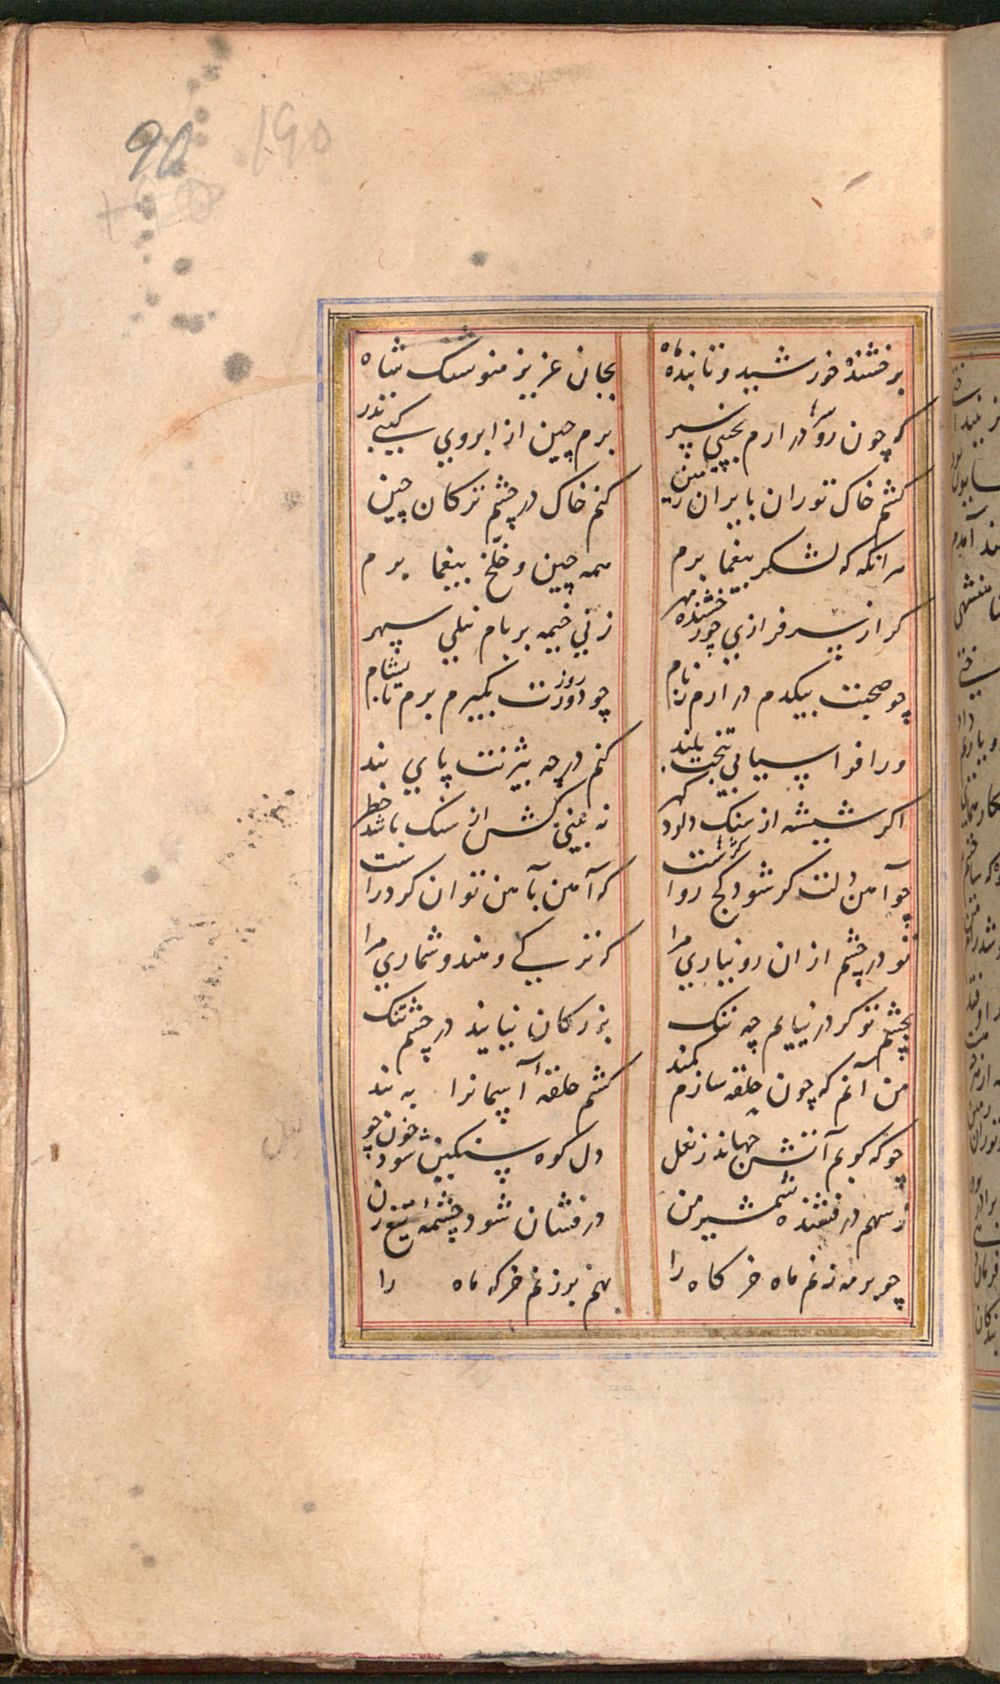 برخشنده خورشید و تابنده ماه
بجان عزیز منوشنک شاه
که چون روی در ارم بچینی سپر
برم چین از ابروی
کشم خاک توران بایران زمین
کنم خاک در چشم ترکان چین
مرانکه که لشکر بیغما برم
همه چین و خلّخ بیغما برم
کر از سرفرازی چو رخشنده مهر
زنی خیمه بر بام نیلی سپهر
چو صحبت بیکدم در ارم ز بام
چو روزت بکیرم برم تا بشام
ور افراسیابی بتخت بلند
کنم در چه بیژنت پای بند
اکر شیشه از سنک دارد کهر
نه بینی کش از سنک باشد خطر
چو آهن دلت کر شود کج رواست
که آهن بآهن توان کرد راست
تو در چشم از ان رو نیاری مرا
که ترکی و هندو شماری مرا
بچشم تو کر در نیایم چه ننک
بزرکان نیایند در چشم تنک
من آنم که چون حلقه سازم کمند
کشم حلقه آسمانرا به بند
چو که کوبم آتش جهاند ز نعل
دل کوه سنکین شود خون چو
ز سهم درفشنده شمشیر من
درفشان شود چشمه تیغ زن
چو بر مه زنم ماه خرکاه را
بهم بر زنم خرکه ماه را
90 190